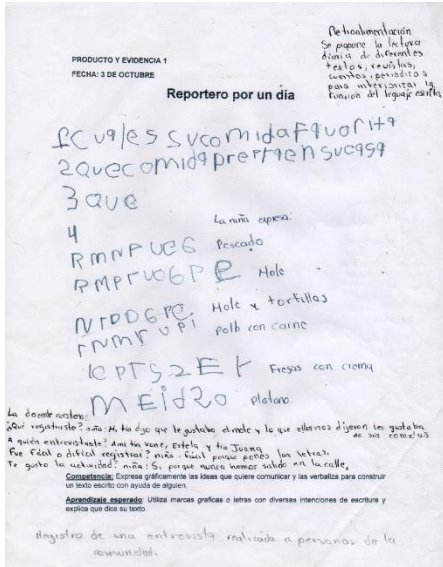 Retroalimentación
Se propone la lectura
diaria de diferentes
textos, revistas,
cuentos, periodicos
para interiorizar la
función del lenguaje escrito
PRODUCTO Y EVIDENCIA 1
FECHA: 3 DE OCTUBRE
Reportero por un día
1Cualessucomidafavorita
2quecomidaprefiensucasa
3que
4
La niña expresa:
RMNPUEG Pescado
PMPRUOGPE Mole
NTDDGPE Mole y tortillas
rnmrupi pollo con carne
ICPTS2Er Fresas con crema
MEid2o platano
La docente cuestiona:
¿Qué registraste? niña: Mi tía dijo que le gustaba el mole y lo que ellas nos dijeron les gustaba
de sus comidas
A quién entrevistaste? A mi tia Vane, Estela y tia Juana
Fue Facil o dificil registrar? niña: Facil porque pones las letras.
Te gusto la actividad? niña: Si, porque nunca hemos salido en la calle,
Competencia: Expresa gráficamente las ideas que quiere comunicar y las verbaliza para construir
un texto escrito con ayuda de alguien.
Aprendizaje esperado: Utiliza marcas graficas o letras con diversas intenciones de escritura y
explica que dice su texto.
Registro de una entrevista realizada a personas de la
comunidad.